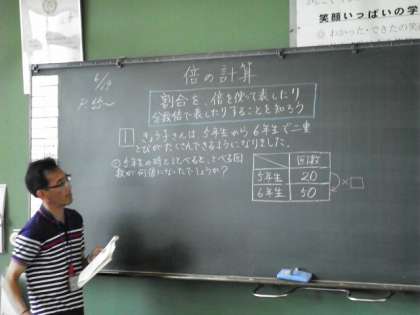 笑顔いっぱいの学
◎わかった・できたの笑
6/19
P.55〜
倍の計算
割合を、倍を使って表したり
分数倍で表したりすることを知ろう
1 きょう子さんは、5年生から6年生で二重
とびがたくさんできるようになりました。
①5年生の時とくらべると、とべる回
数が何倍になったでしょうか?
回数
5年生 20
6年生 50
×□